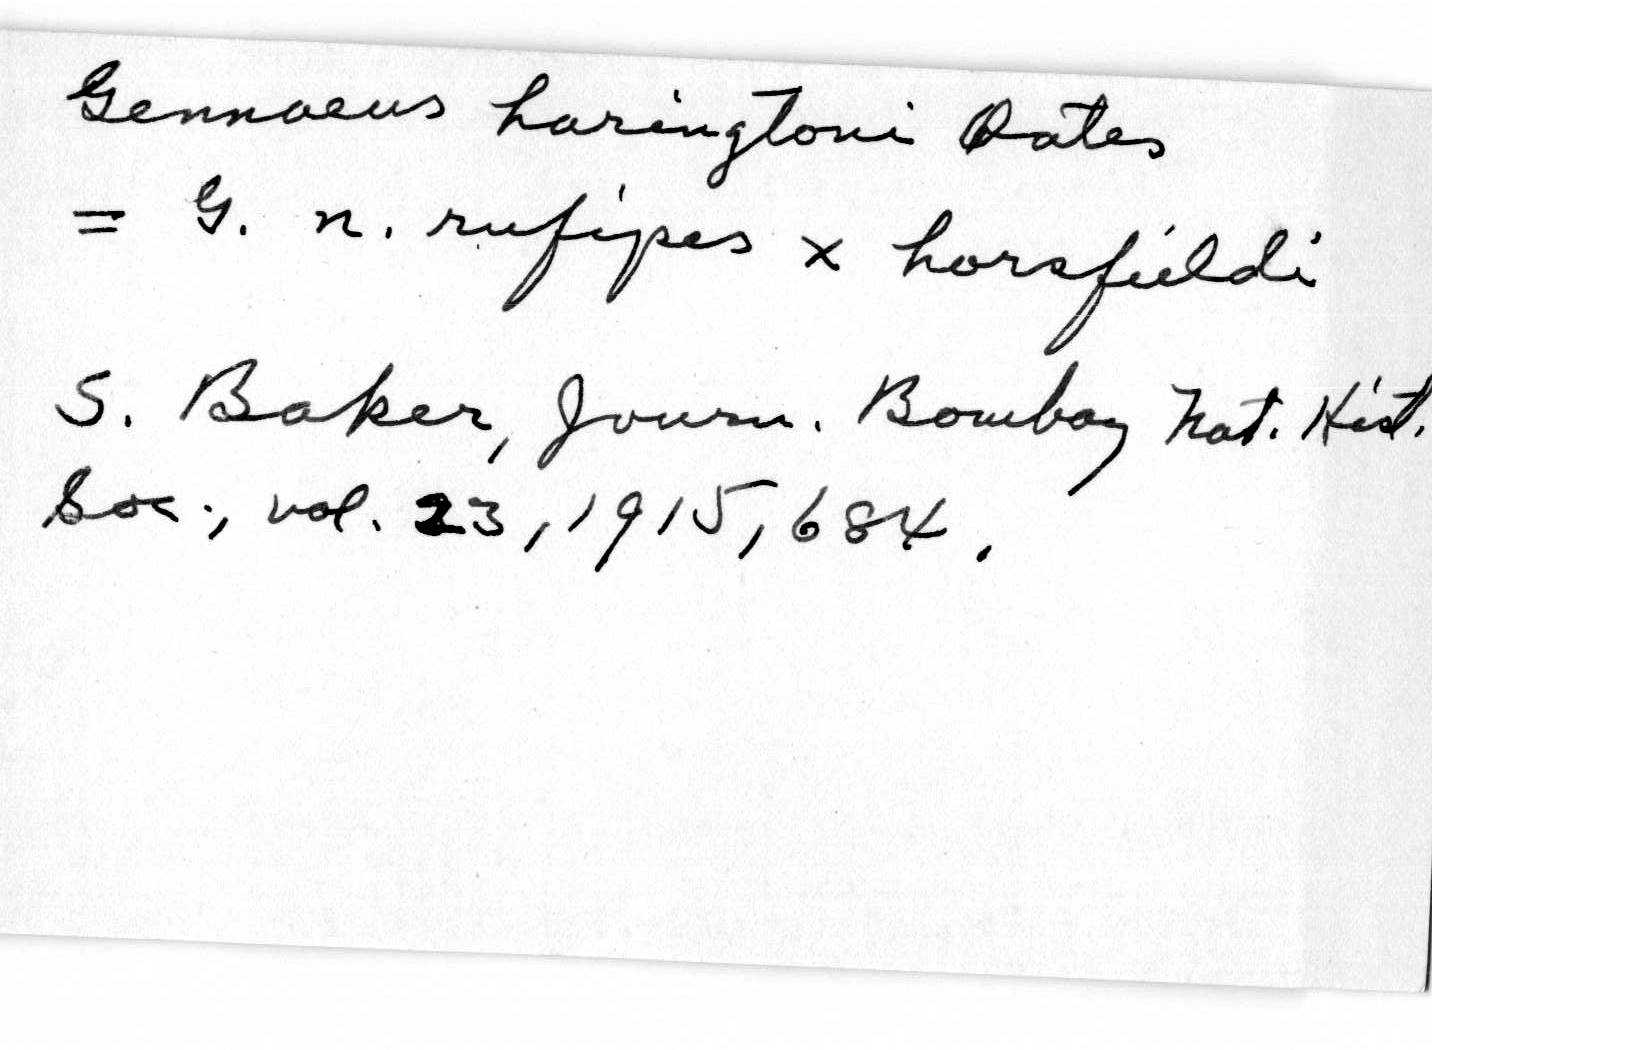 Gennaeus haringtoni Oates
= G. n. rufipes x horsfieldi
S. Baker, Journ. Bombay Nat. Hist.
Soc., vol. 23, 1915, 684.